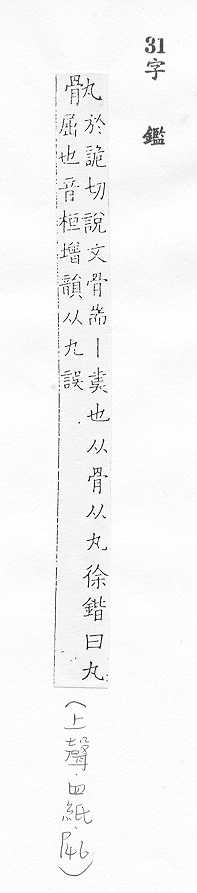 31字鑑
骫於詭切說文骨耑丨奊也从骨从丸徐鍇曰丸
屈也音桓增韻从九誤
(上聲·四紙·P46)